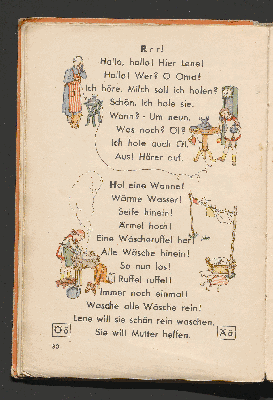 Rrr!
Hallo, hallo! Hier Lene!
Hallo! Wer? O Oma!
Ich höre. Milch soll ich holen?
Schön. Ich hole sie.
Wann? - Um neun.
Was noch? Öl?
Ich hole auch Öl.
Aus! Hörer auf.
Hol eine Wanne!
Wärme Wasser!
Seife hinein!
Ärmel hoch!
Eine Wäscheruffel her!
Alle Wäsche hinein!
So nun los!
Ruffel ruffel!
Immer noch einmal!
Wasche alle Wäsche rein!
Lene will sie schön rein waschen.
Öö Sie will Mutter helfen. Ää
30